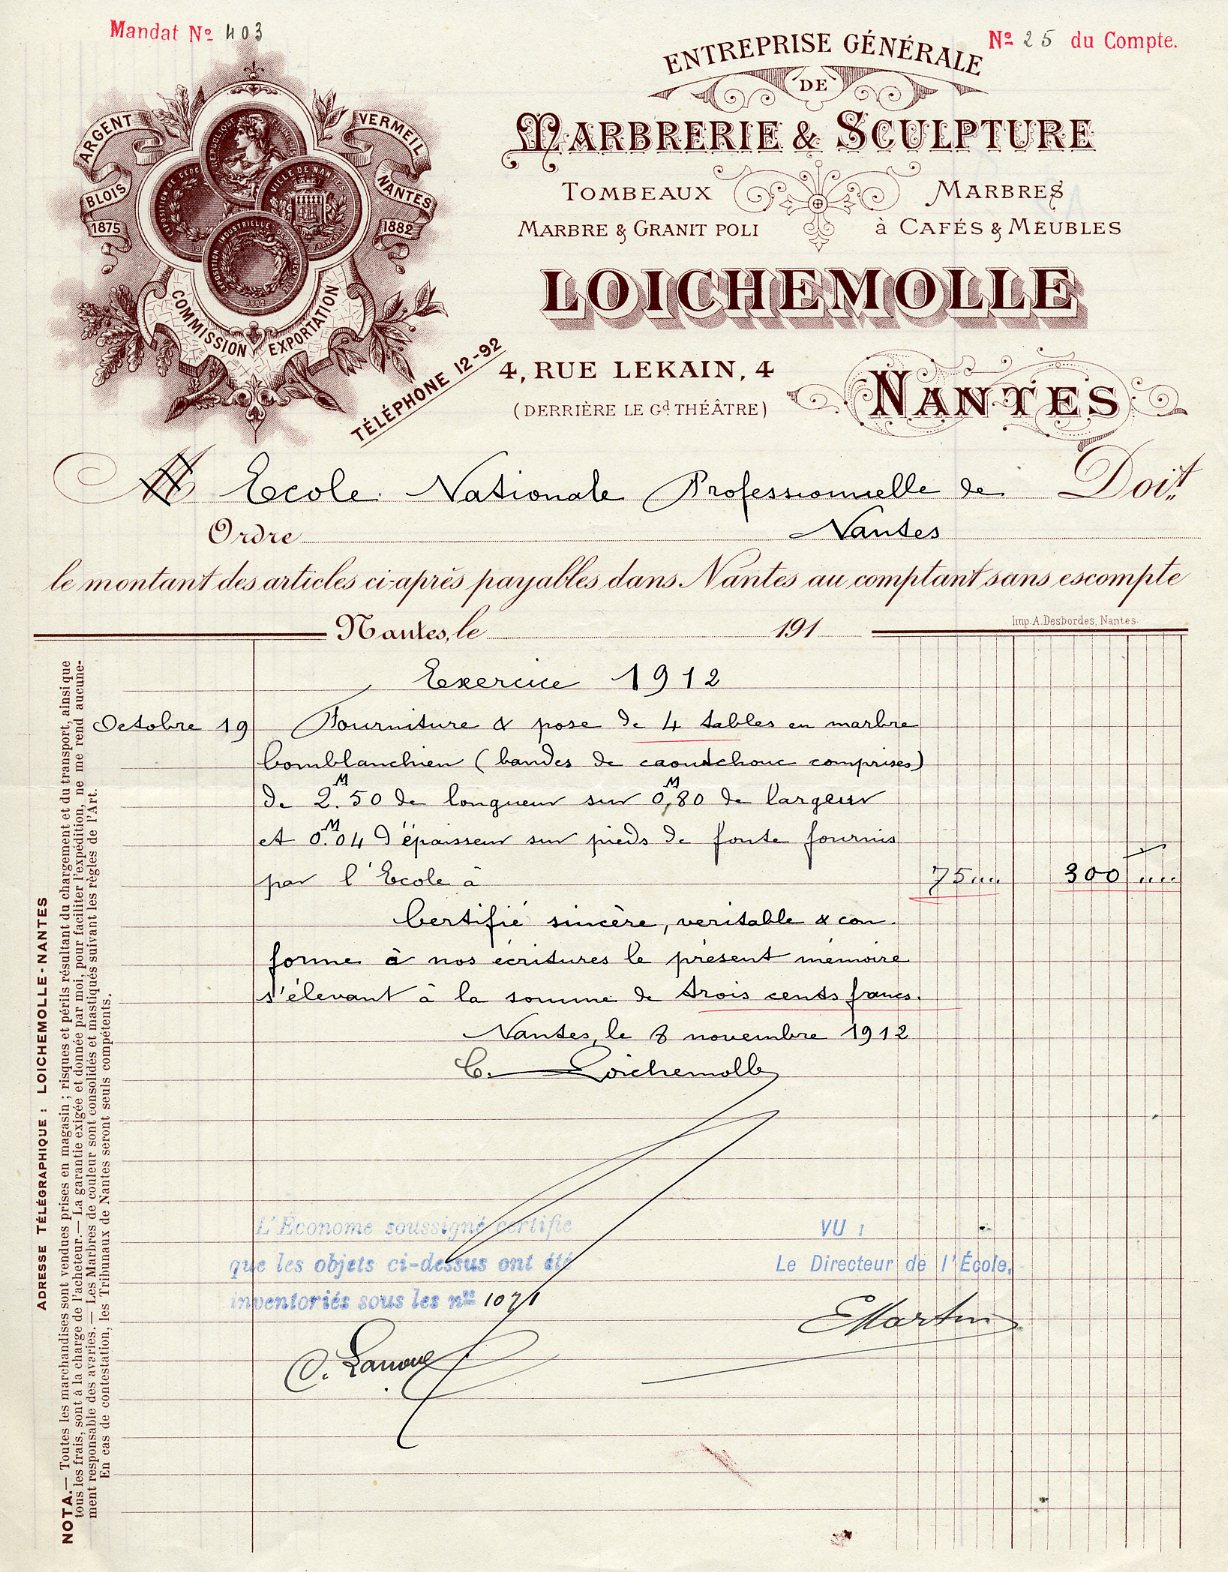 Mandat Nº 403
Nº 25 du Compte.
ENTREPRISE GÉNÉRALE
DE
MARBRERIE & SCULPTURE
TOMBEAUX MARBRES
MARBRE & GRANIT POLI à CAFÉS & MEUBLES
LOICHEMOLLE
4, RUE LEKAIN, 4
(DERRIÈRE LE Gd THÉÂTRE)
NANTES
ARGENT VERMEIL
BLOIS NANTES
1875 1882
VILLE DE NANTES
COMMISSION EXPORTATION
TÉLÉPHONE 12-92
M Ecole Nationale Professionnelle de Doit
Ordre Nantes
le montant des articles ci-après payables dans Nantes au comptant sans escompte
Nantes, le 191
Imp. A. Desbordes, Nantes.
Exercice 1912
Octobre 19 Fourniture & pose de 4 tables en marbre
Comblanchien (bandes de caoutchouc comprises)
de 2M.50 de longueur sur 0M,80 de largeur
et 0M.04 d'épaisseur sur pieds de fonte fournis
par l'Ecole à 75 "" 300 ""
Certifié sincère, veritable & con-
forme à nos écritures le présent mémoire
s'élevant à la somme de trois cents francs.
Nantes, le 8 novembre 1912
C. Loichemolle
L'Économe soussigné certifie
que les objets ci-dessus ont été
inventoriés sous les nos 1071
VU :
Le Directeur de l'École,
EMartin
ADRESSE TÉLÉGRAPHIQUE : LOICHEMOLLE-NANTES
NOTA.— Toutes les marchandises sont vendues prises en magasin ; risques et périls résultant du chargement et du transport, ainsi que
tous les frais, sont à la charge de l'acheteur.— La garantie exigée et donnée par moi, pour faciliter l'expédition, ne me rend aucune-
ment responsable des avaries.— Les Marbres de couleur sont consolidés et mastiqués suivant les règles de l'Art.
En cas de contestation, les Tribunaux de Nantes seront seuls compétents.